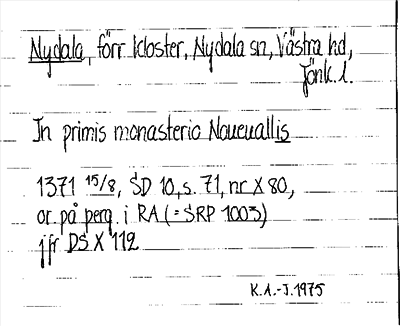 Nydala, förr kloster, Nydala sn, Västra hd,
Jönk. l.
In primis monasterio Noueuallis
1371 15/8, SD 10, s. 71, nr X 80,
or. på perg. i RA (=SRP 1003)
jfr DS X 112
K.A.-J. 1975